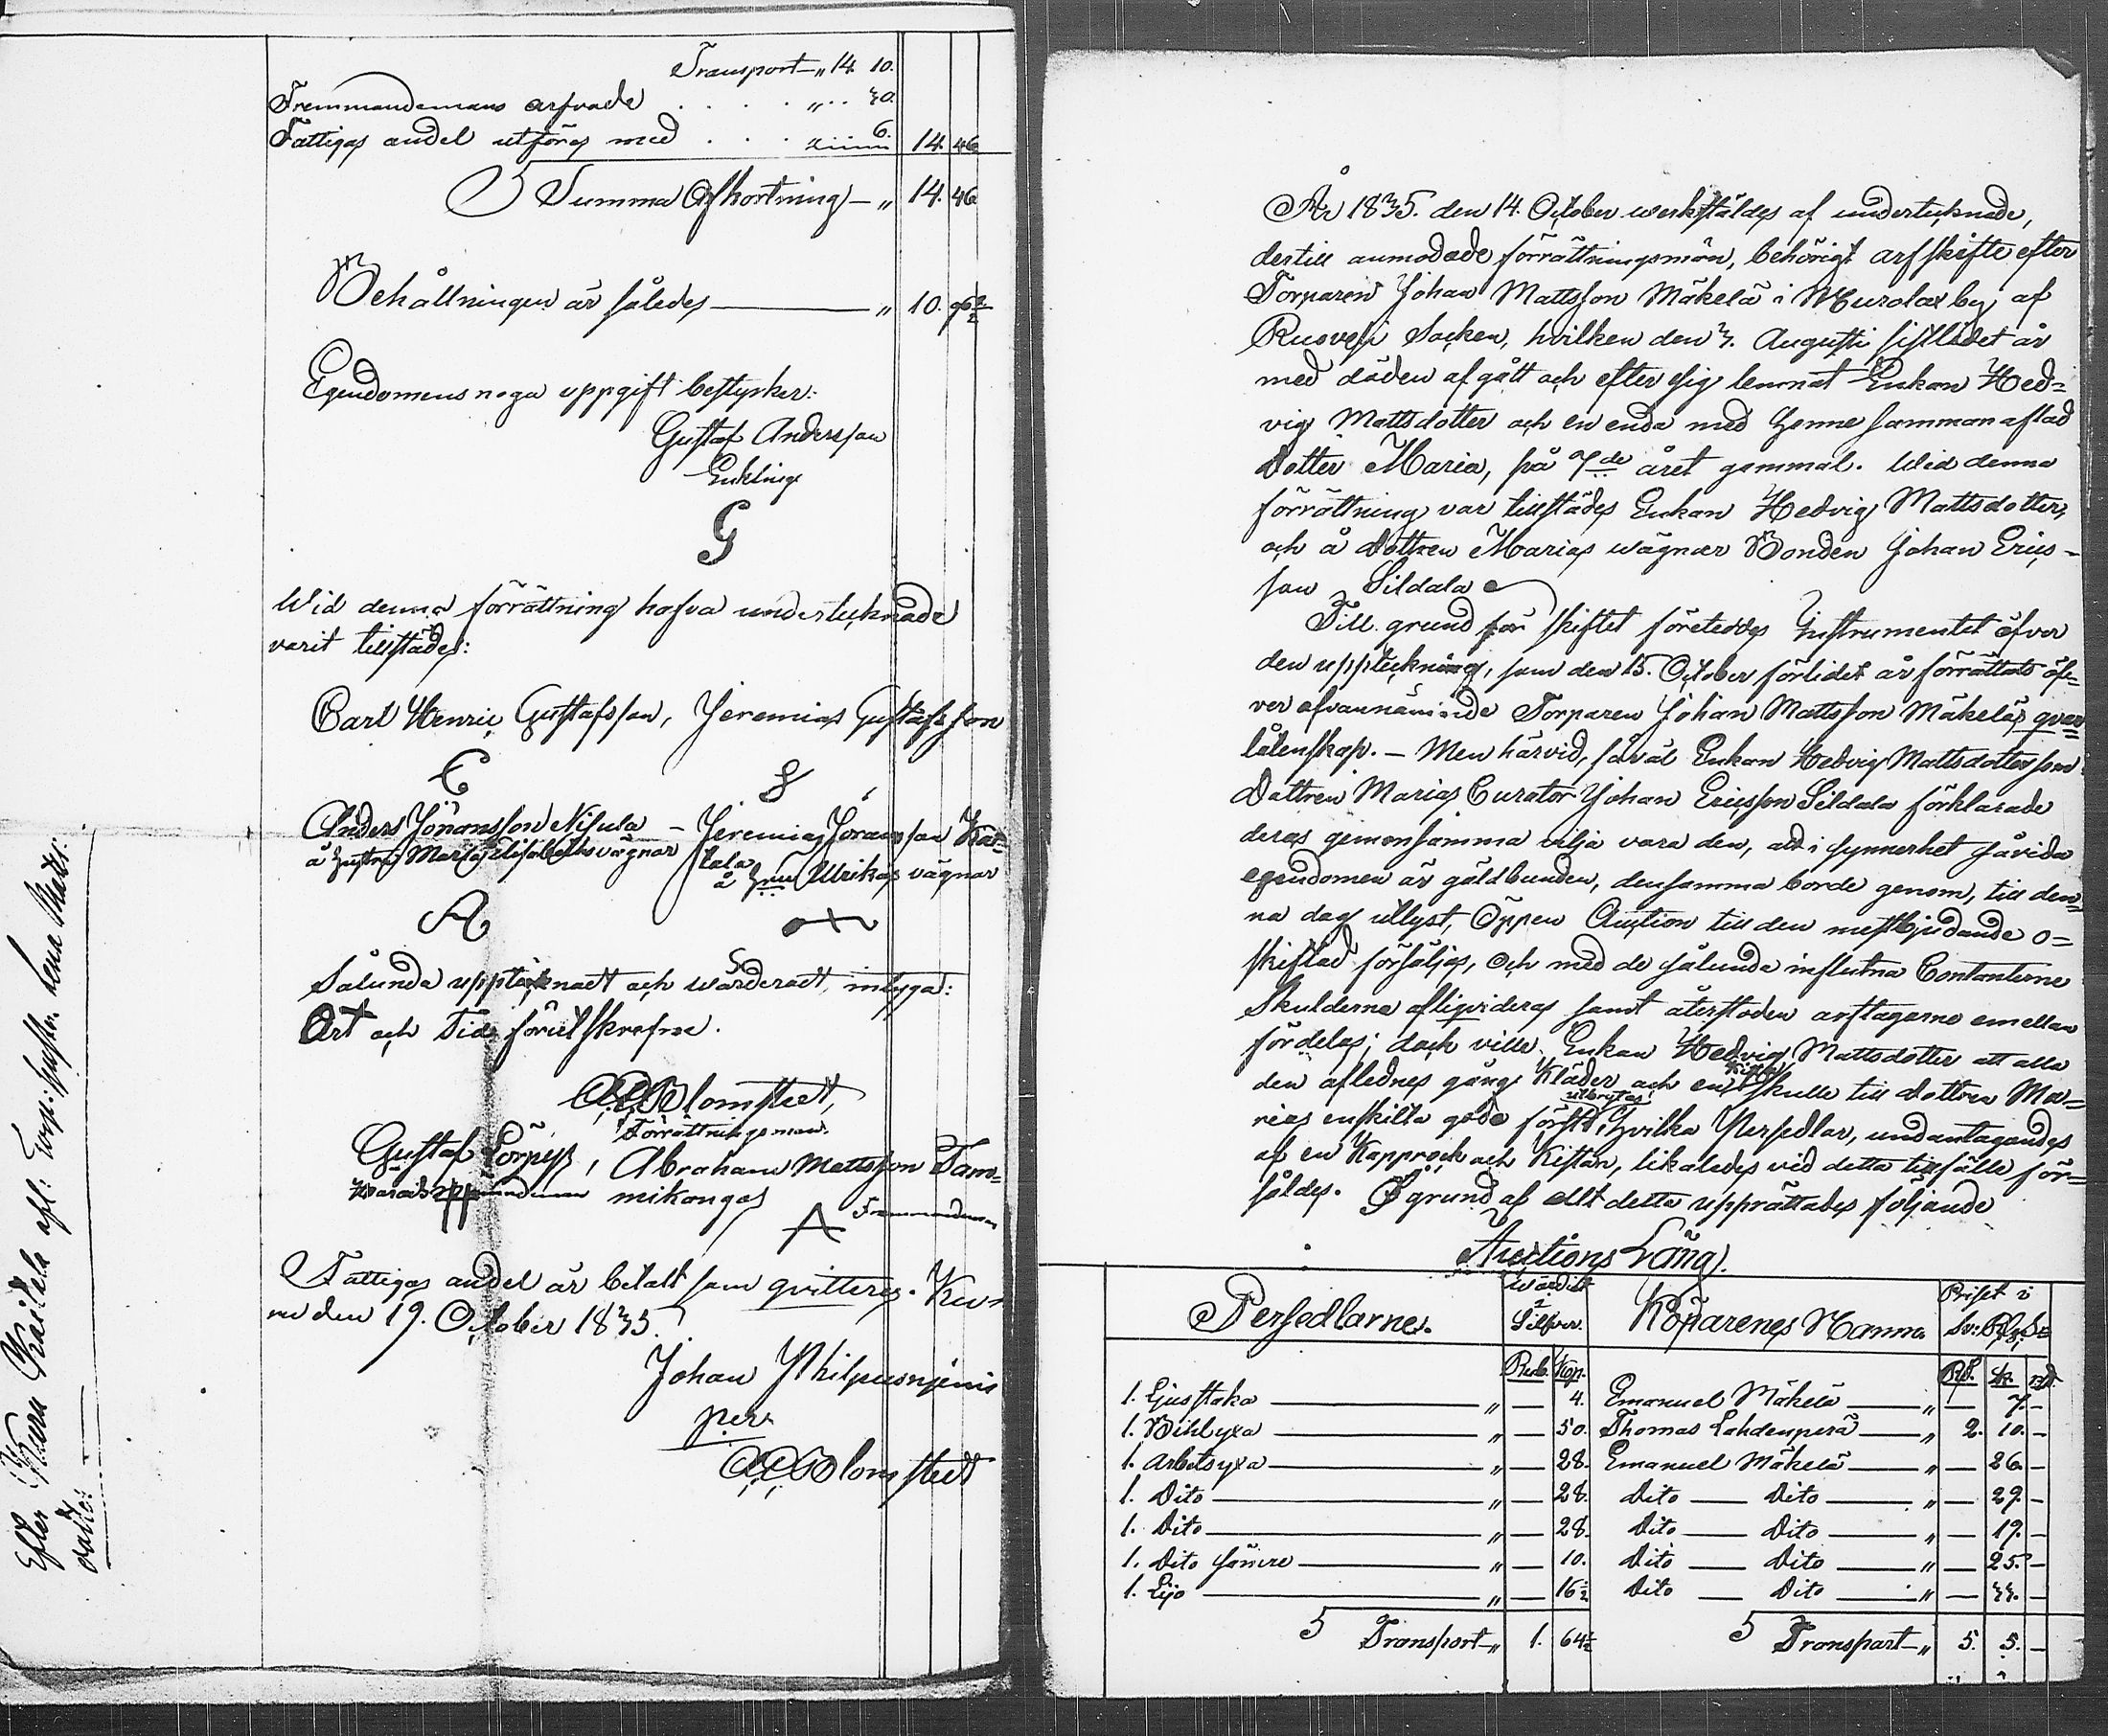 Transport — „ 14. 10.
Fremmandemans arfvode . . . . „ . . 30.
Fattigas andel utföres med . . . 6. 14. 46
S Summa Afkortning — „ 14. 46
Behållningen är således — „ 10. 96½
Egendomens noga uppgift bestyrker:
Gustaf Andersson
Enkling
G
Wid denna förrättning hafva undertecknade
varit tillstädes:
Carl Henric Gustafsson, Jeremias Gustafsson
C
Anders Jöransson Nisula — Jeremias Göransson
å hustrus Maria Elisabeths vägnar
å hust: Ulrikas vägnar
A
Sålunda upptecknadt och värderadt, intyga:
Ort och Tid förutskrefne.
Blomstedt,
Förrättningsman.
Gustaf Sörpess, Abraham Mattsson Tam-
mikangas
A Fremmandeman
Fattigas andel är betalt som qvitteras. Ku-
ru den 19. October 1835.
Johan Philpusnjemis
per
Blomstedt
Efter Kuru afl. Torp: hustr. Lena Matts:
dotter
År 1835. den 14. October werkstäldes af undertecknade,
dertill anmodade förrättningsmän, behörigt arfskifte efter
Torparen Johan Mattsson Mäkelä i Murolax by af
Ruovesi Socken, hvilken den 3. Augusti sistlidet år
med döden afgått och efter sig lemnat Enkan Hed=
vig Mattsdotter och en enda med henne sammanaflad
dotter Maria, på 7de året gammal. Wid denna
förrättning var tillstädes Enkan Hedvig Mattsdotter,
och å dottren Marias wägnar Bonden Johan Erics-
son Sildala
Till grund för skiftet företeddes Instrumentet öfver
den uppteckning, som den 15. October förlidet år förrättats öf=
ver ofvannämnde Torparen Johan Mattsson Mäkeläs qvar=
låtenskap. — Men härvid, såväl Enkan Hedvig Mattsdotter som
Dottren Marias Curator Johan Ericsson Sildala förklarade
deras gemensamma vilja vara den, att i synnerhet såvida
egendomen är gäldbunden, densamma borde genom, till den=
na dag utlyst, Öppen Auction till den mestbjudande o=
skiftad försäljas, och med de sålunda influtna Contanterne
Skulderne afliqvideras samt återstoden arftagarne emellan
fördelas; dock ville Enkan Hedvig Mattsdotter att alla
den aflednes gång Kläder och en Kista skulle till dottren Ma=
rias enskilta gode först utbrytas, hvilka Persedlar, undantagandes
af en Kapprock och Kistan, likaledes vid detta tillfälle för=
såldes. På grund af allt detta upprättades följande
Auctions Läng.
Persedlarne. Wärdet i Silfver. Köparenes Namn. Priset i
Rub. Kop. Rd. sk.
1. Ljusstaka — „ — 4. Emanuel Mäkelä — „ — 7. -
1. Bihlyxa — „ — 50. Thomas Lahdenperä — „ 2. 10. -
1. Arbetsyxa — „ — 28. Emanuel Mäkelä — „ — 26. -
1. Dito — „ — 28. Dito — Dito — „ — 29. -
1. Dito — „ — 28. Dito — Dito — „ — 19. -
1. Dito sämre — „ — 10. Dito — Dito — „ — 25. -
1. Lijo — „ — 16½ Dito — Dito — „ — 33. -
S Transport — „ 1. 64½ S Transport — „ 5. 5. -